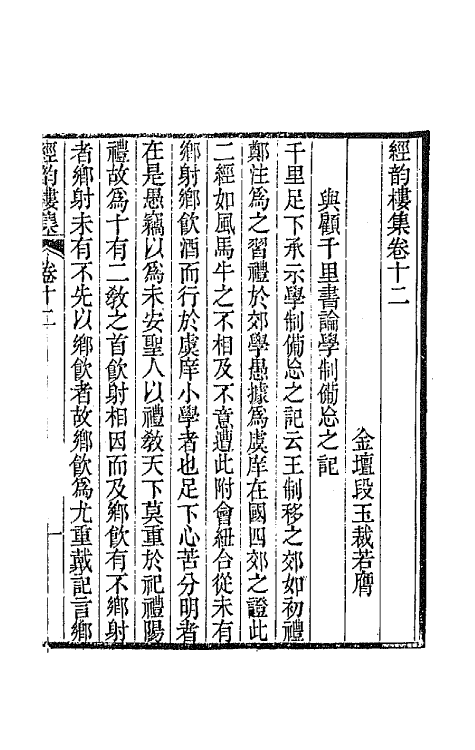 經韵樓集卷十二
金壇段玉裁若膺
與顧千里書論學制備忘之記
千里足下承示學制備忘之記云王制移之郊如初禮
鄭注爲之習禮於郊學愚據爲虞庠在國四郊之證此
二經如風馬牛之不相及不意遭此附會紐合從未有
鄉射鄉飮酒而行於虞庠小學者也足下心苦分明者
在是愚竊以爲未安聖人以禮敎天下莫重於祀禮陽
禮故爲十有二敎之首飮射相因而及鄉飮有不鄉射
者鄉射未有不先以鄉飮者故鄉飮爲尤重戴記言鄉
經韵樓集 卷十二 一